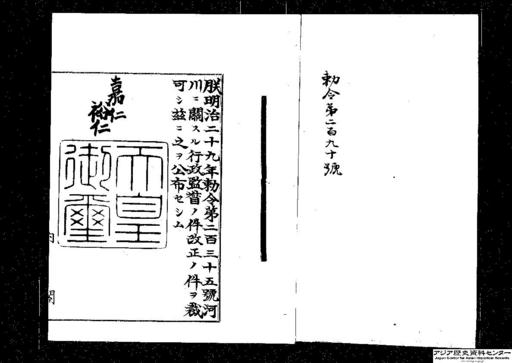 勅令第二百九十號
朕明治二十九年勅令第二百三十五號河
川ニ關スル行政監督ノ件改正ノ件ヲ裁
可シ茲ニ之ヲ公布セシム
嘉仁
裕仁
天皇
御璽
内閣
アジア歴史資料センター
Japan Center for Asian Historical Records